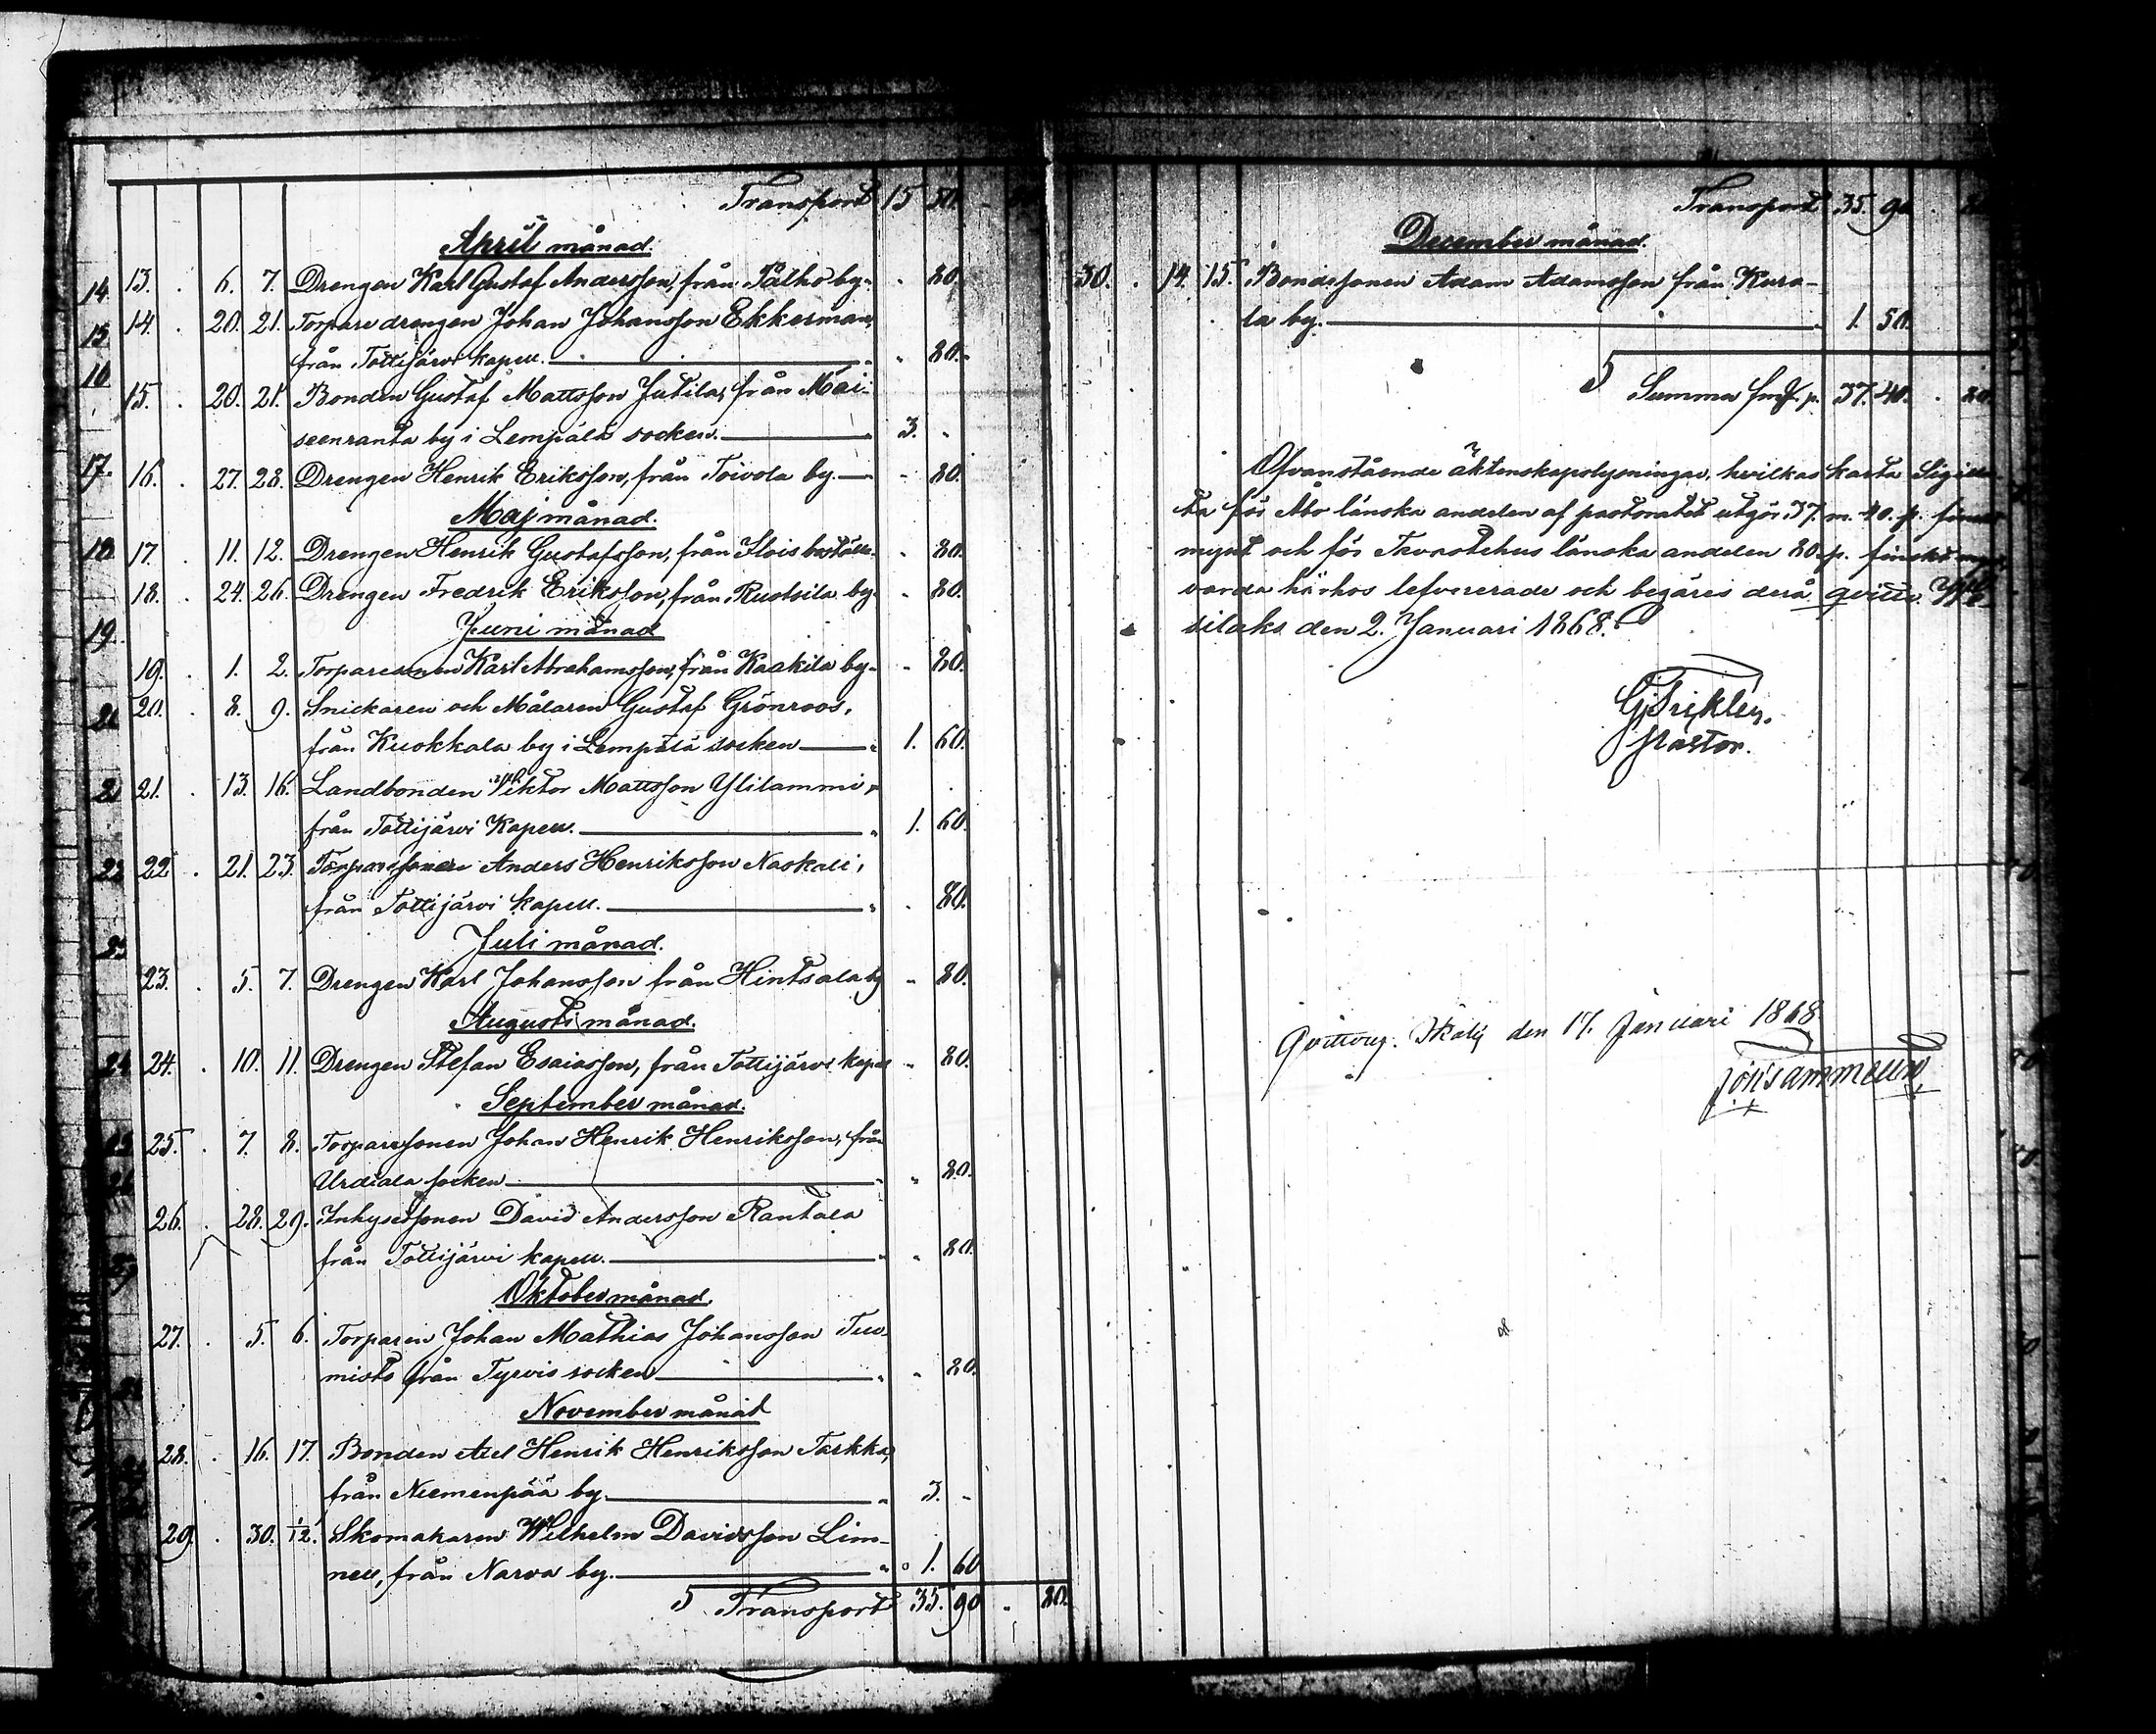 Transport 15 50.
April månad.
14 13. . 6. 7. Drengen Karl Gustaf Andersson, från Pålho by. " 80.
15 14. . 20. 21. Torpare drengen Johan Johansson Ekkerman,
från Tottijärvi kapell. " 80.
16 15. . 20. 21. Bonden Gustaf Mattsson Jutila, från Mai-
seenranta by i Lempälä socken. 3. "
17. 16. . 27. 28. Drengen Henrik Eriksson, från Toivola by. " 80.
Maj månad.
18 17. 11. 12. Drengen Henrik Gustafsson, från " 80.
18. . 24. 26. Drengen Fredrik Eriksson, från Rustsila by. " 80.
19. Juni månad
19. . 1. 2. Torparesonen Karl Abrahamsson, från Kaakila by. " 80.
20. . 8. 9. Snickaren och Målaren Gustaf Grönroos,
från Kuokkala by i Lempälä socken 1. 60.
21 21. . 13. 16. Landbonden Viktor Mattsson Ylilammi,
från Tottijärvi Kapell. 1. 60.
22 22 . 21. 23. Torparesonen Anders Henriksson Naskali,
från Tottijärvi kapell. " 80.
Juli månad.
23. . 5. 7. Drengen Karl Johansson från Hintsala by " 80.
Augusti månad.
24 24. . 10. 11. Drengen Stefan Esaiasson, från Tottijärvi kapell " 80.
September månad.
25 25. . 7. 8. Torparesonen Johan Henrik Henriksson, från
Urdiala socken " 80.
26. . 28. 29. Inhysessonen David Andersson Rantala
från Tottijärvi kapell. " 80.
Oktober månad.
27. . 5. 6. Torparen Johan Mathias Johansson Tuo-
misto från Tyrvis socken " 80.
November månad
28. . 16. 17. Bonden Axel Henrik Henriksson Tarkka,
från Niemenpää by. 3. -
29. . 30. 1/12. Skomakaren Wilhelm Davidsson Lim-
nell, från Narva by. 1. 60
Transport 35. 90 . 80.
Transport 35. 90 . 80
December månad.
30. . 14. 15. Bondesonen Adam Adamsson från Kura-
la by. 1. 50.
Summa Fmk p. 37. 40. . 80.
Ofvanstående äktenskapslysningar, hvilkas karta Sigilla-
ta för Åbo länska andelen af pastoratet utgör 37. m. 40. p. finskt
mynt och för Tavastehus länska andelen 80. p. finskt mynt
varda härhos lefvererade och begäres derå qvitto. Vesi-
silaks den 2. Januari 1868.
Pastor.
den 17. Januari 1868